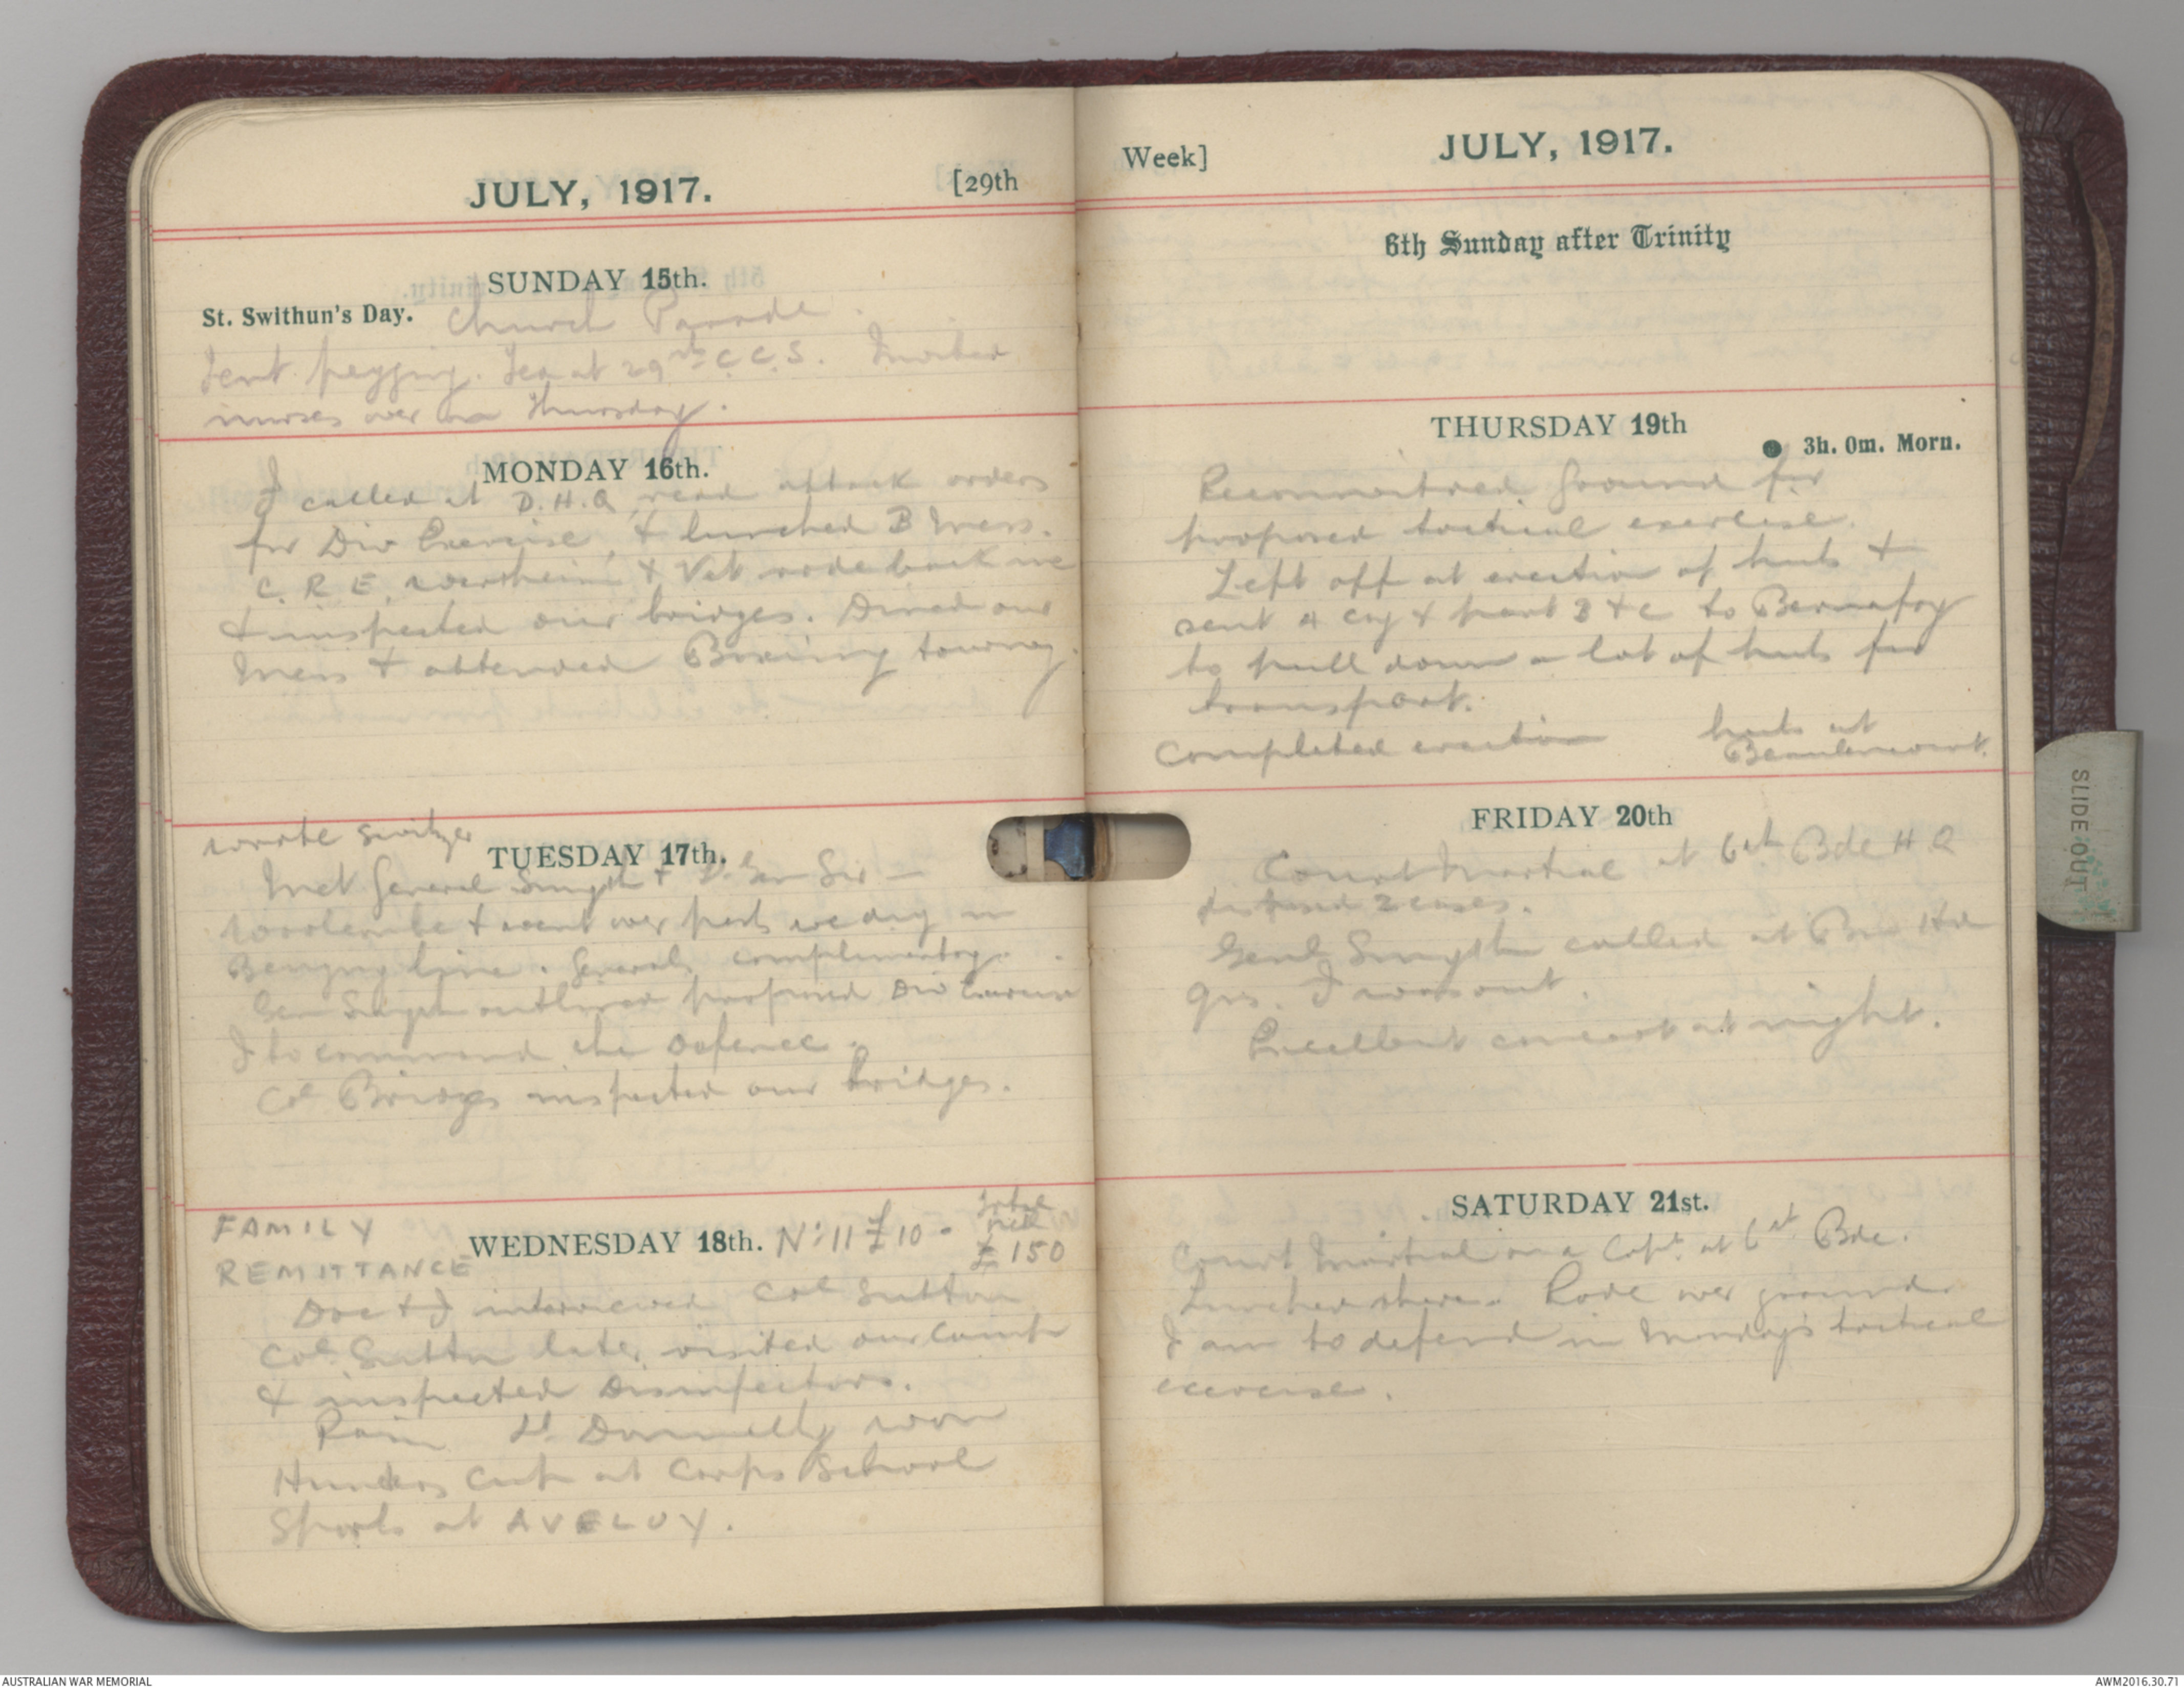 JULY, 1917. [29th
SUNDAY 15th.
St. Swithun's Day. Church Parade.
Tent pegging. Tea at 29th C.C.S. Invited
nurses over on Thursday.
MONDAY 16th.
I called at D.H.Q, read attack orders
for Div Exercise, & lunched B Mess.
C.R.E. & Vet rode back
& inspected our bridges. Dined our
Mess & attended Boxing tourney.
wrote Switzer
TUESDAY 17th.
Met General Smyth & Sir
& went over part we dig in
Beugny line. Generals complimentary.
Gen Smyth outlined proposed Div Exercise
I to command the Defence.
Col Bridges inspected our bridges.
FAMILY
REMITTANCE
WEDNESDAY 18th. No 11 £10 - Total
£150
Doc & I interviewed Col Sutton
Col. Sutton later visited our Camp
& inspected Disinfectors.
Rain Lt Donnelly won
Hunters Cup at Corps School
Sports at AVELUY.
Week] JULY, 1917.
6th Sunday after Trinity
THURSDAY 19th
3h. 0m. Morn.
Reconnoitred ground for
proposed tactical exercise.
Left off at erection of huts &
sent A Coy & part B & C to Bernafoy
to pull down a lot of huts for
transport.
Completed erection huts at
Beaulencourt.
FRIDAY 20th
Court Martial at 6th Bde H Q
2 cases.
Genl Smyth called at Bn Hd
qrs. I was out.
Excellent concert at night.
SATURDAY 21st.
Court Martial on a Capt. at 6th Bde.
Lunched there. Rode over ground
I am to defend in Monday's tactical
exercise.
SLIDE OUT
AUSTRALIAN WAR MEMORIAL
AWM2016.30.71